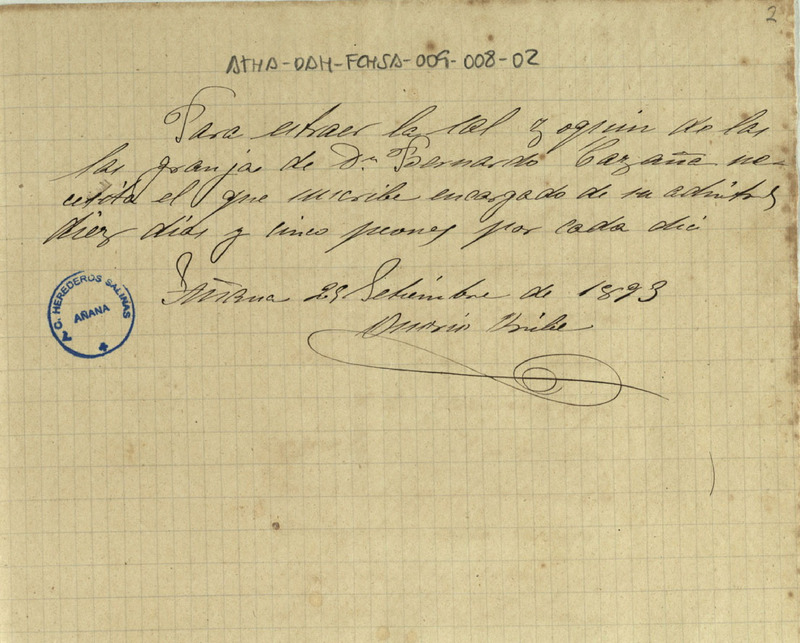 2
ATHA-DAH-FCHSA-009-008-02
Para estraer la sal y de las
las granjas de Dn Bernardo ne-
cesita el que suscribe encargado de su
diez dias y cinco peones por cada dia
Añana 29 Setiembre de 1893
Uribe
C. HEREDEROS SALINAS
AÑANA